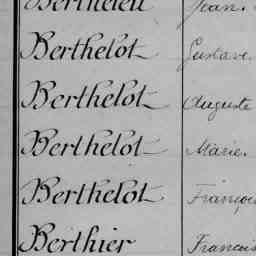 Jean.
Berthelot Gustave
Berthelot Auguste
Berthelot Marie.
Berthelot
Berthier